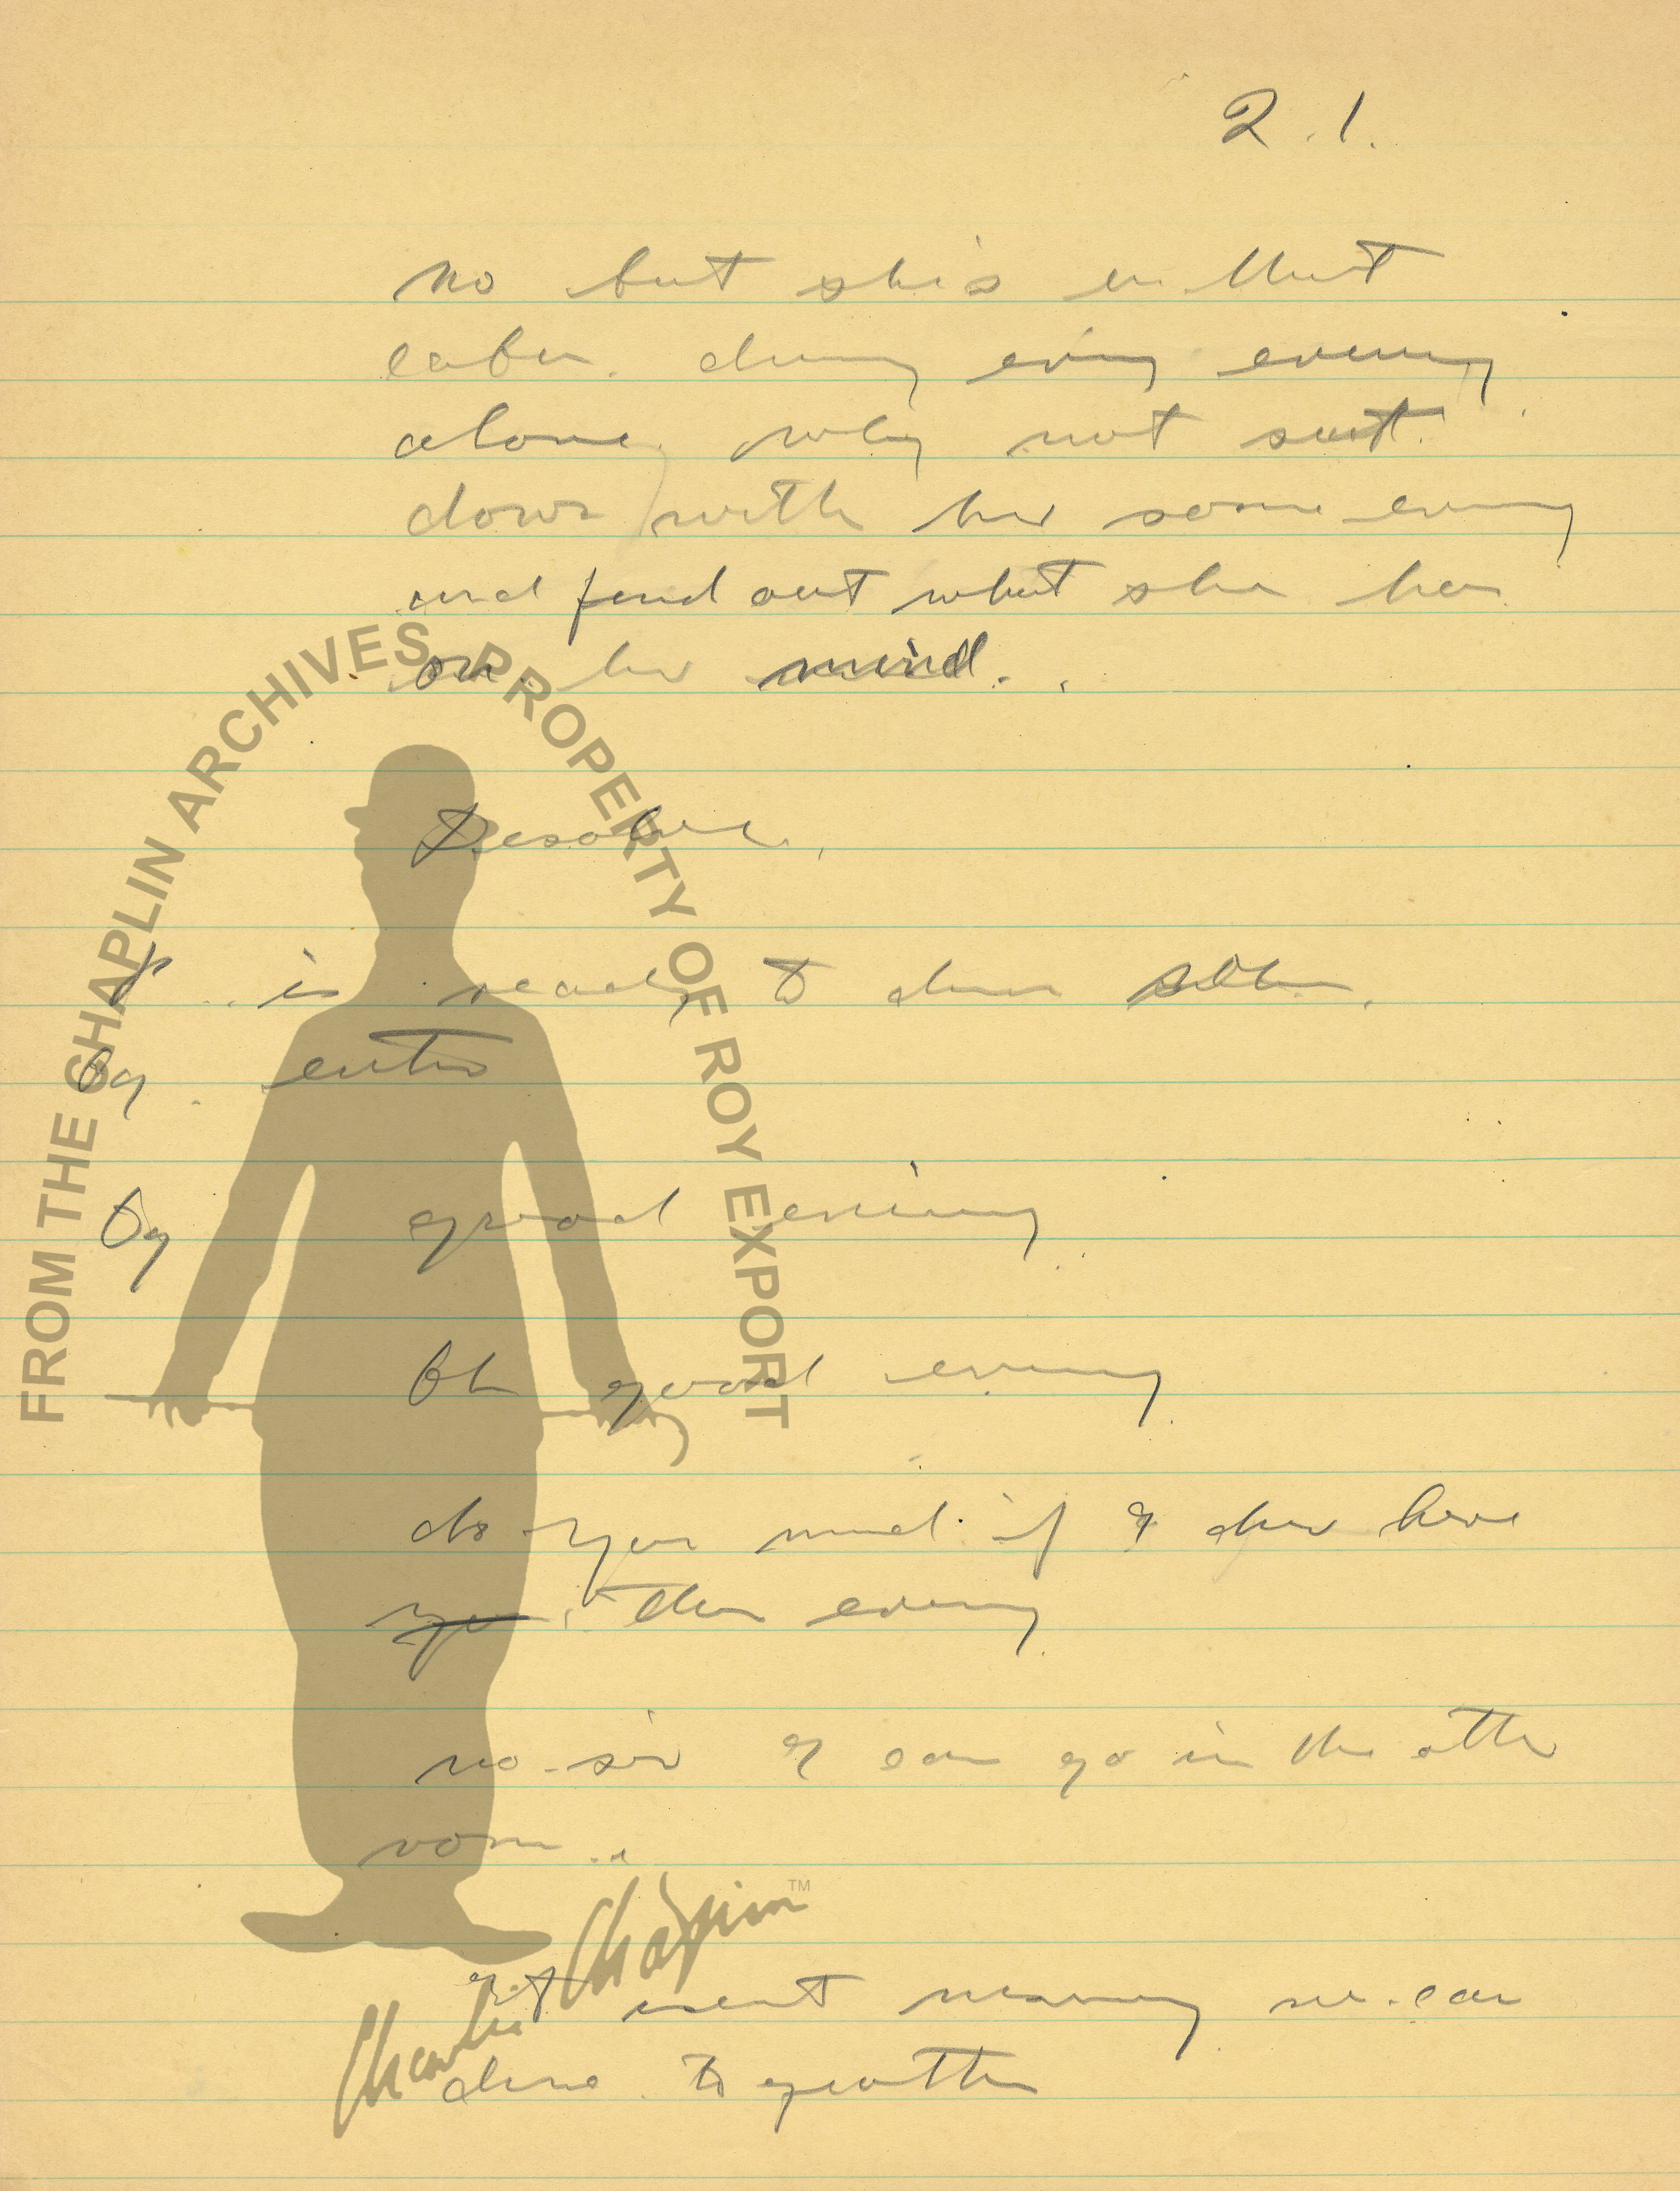 21.
no but she's in that
cabin. dining every evening
alone, why not sit
down with her some evening
and find out what she has
on her mind.
Desolve.
P is ready to dine
Og. enter
Og good evening
Oh good evening
do you mind if I dine here
this evening
no sir I can go in the other
room..
isent necessary we can
dine to geather
FROM THE CHAPLIN ARCHIVES. PROPERTY OF ROY EXPORT
Charlie Chaplin™